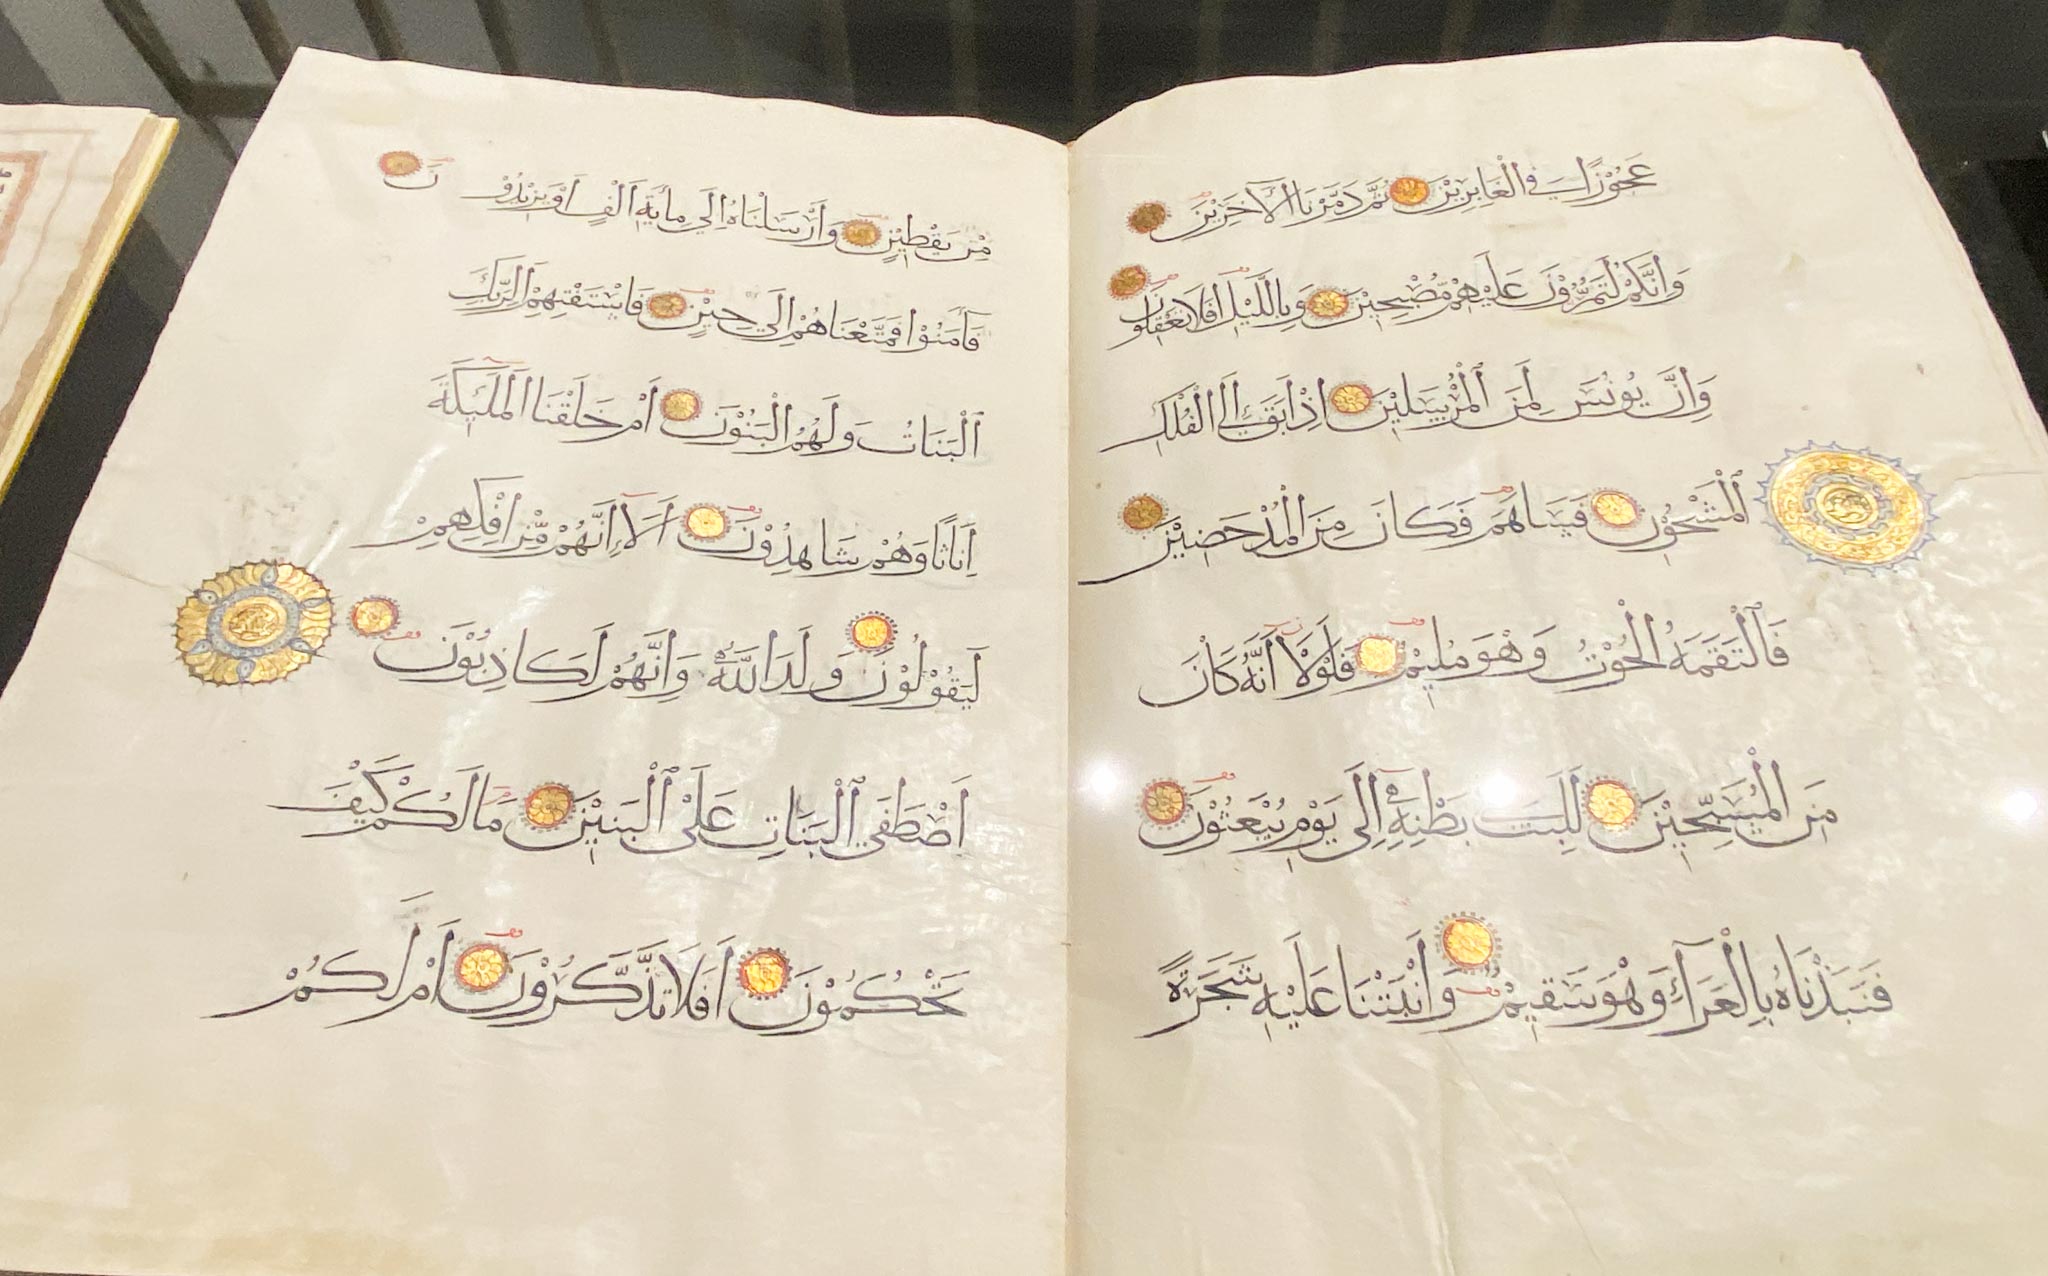 عَجُوْزًا فِي الْغَابِرِيْنَ ثُمَّ دَمَّرْنَا الْآخَرِيْنَ
وَاِنَّكُمْ لَتَمُرُّوْنَ عَلَيْهِمْ مُّصْبِحِيْنَ وَبِاللَّيْلِ اَفَلَا تَعْقِلُوْنَ
وَاِنَّ يُوْنُسَ لَمِنَ الْمُرْسَلِيْنَ اِذْ اَبَقَ اِلَى الْفُلْكِ
الْمَشْحُوْنِ فَسَاهَمَ فَكَانَ مِنَ الْمُدْحَضِيْنَ
فَالْتَقَمَهُ الْحُوْتُ وَهْوَ مُلِيْمٌ فَلَوْلَا اَنَّهُ كَانَ
مِنَ الْمُسَبِّحِيْنَ لَلَبِثَ فِي بَطْنِهِ اِلَى يَوْمِ يُبْعَثُوْنَ
فَنَبَذْنَاهُ بِالْعَرَآءِ وَهْوَ سَقِيْمٌ وَاَنْبَتْنَا عَلَيْهِ شَجَرَةً
مِنْ يَقْطِيْنٍ وَاَرْسَلْنَاهُ اِلَى مِايَةِ اَلْفٍ اَوْ يَزِيْدُوْنَ
فَآمَنُوْا فَمَتَّعْنَاهُمْ اِلَى حِيْنٍ فَاسْتَفْتِهِمْ اَلِرَبِّكَ
الْبَنَاتُ وَلَهُمُ الْبَنُوْنَ اَمْ خَلَقْنَا الْمَلٰٓئِكَةَ
اِنَاثًا وَهُمْ شَاهِدُوْنَ اَلَا اِنَّهُمْ مِّنْ اِفْكِهِمْ
لَيَقُوْلُوْنَ وَلَدَ اللّٰهُ وَاِنَّهُمْ لَكَاذِبُوْنَ
اَصْطَفَى الْبَنَاتِ عَلَى الْبَنِيْنَ مَا لَكُمْ كَيْفَ
تَحْكُمُوْنَ اَفَلَا تَذَّكَّرُوْنَ اَمْ لَكُمْ